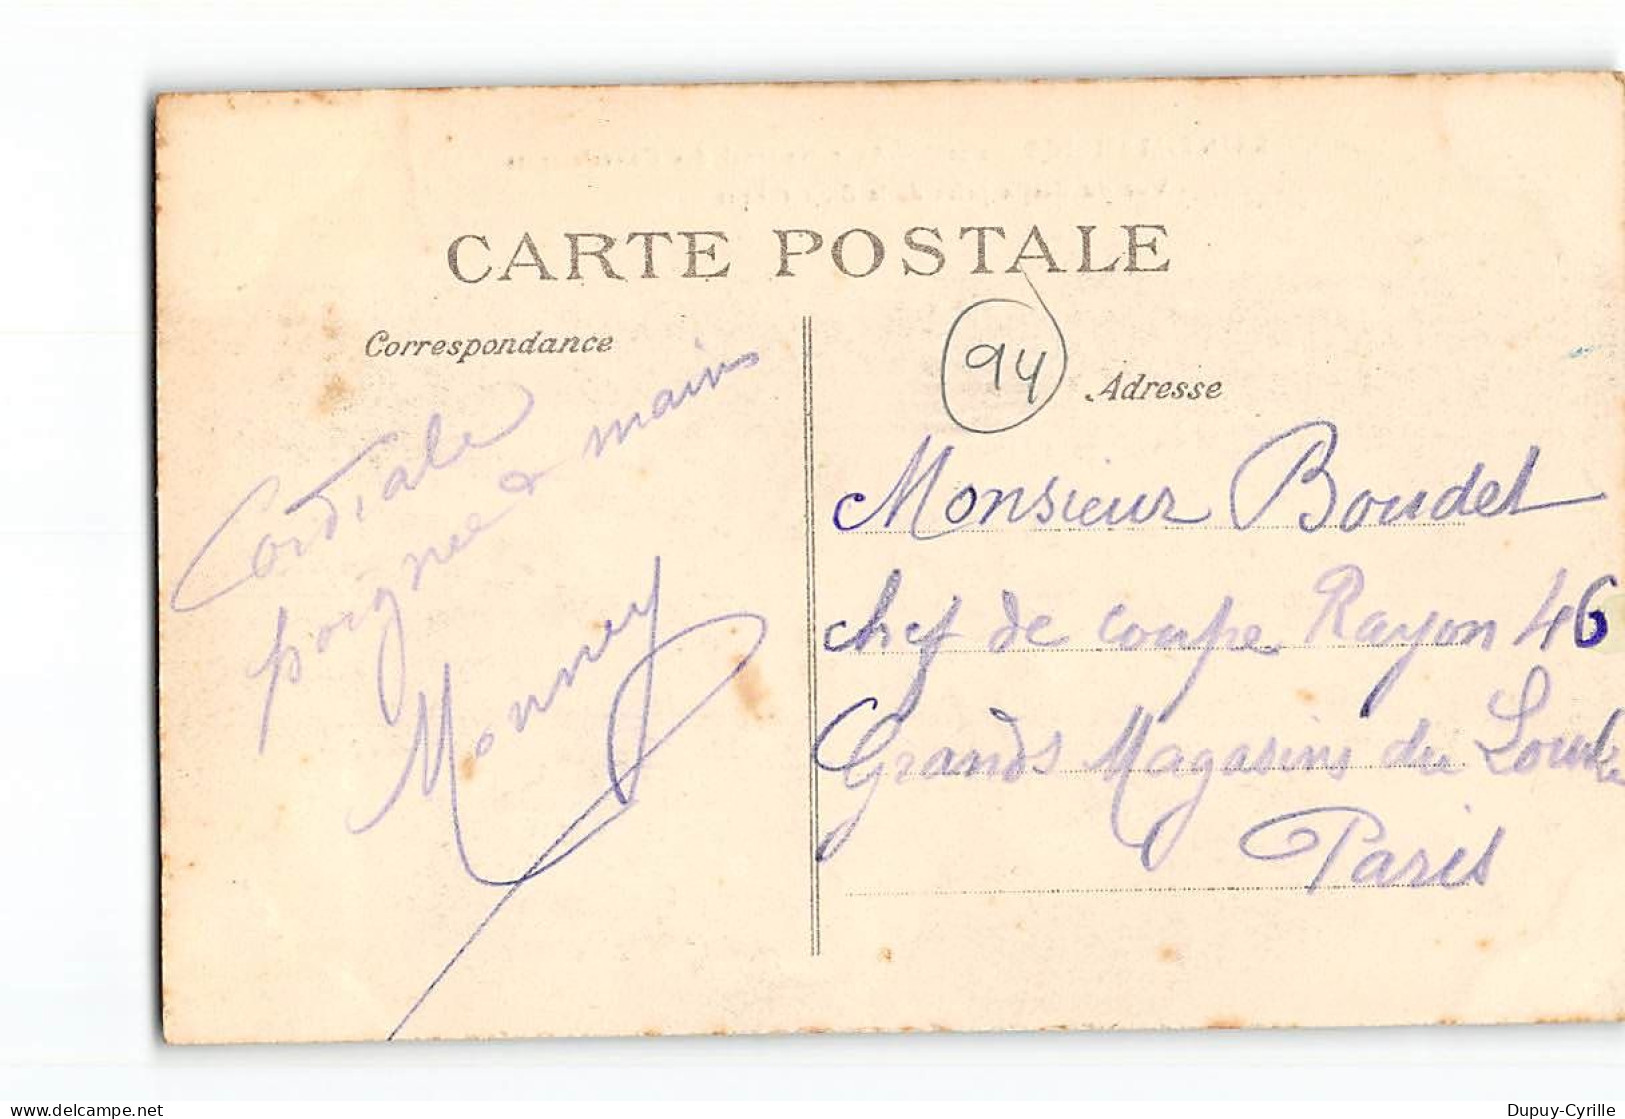 CARTE POSTALE
Correspondance
Cordiale
poignée de mains
Monney
94
Adresse
Monsieur Boudet
chef de coupe Rayon 46
Grands Magasins du Louvre
Paris
Dupuy-Cyrille